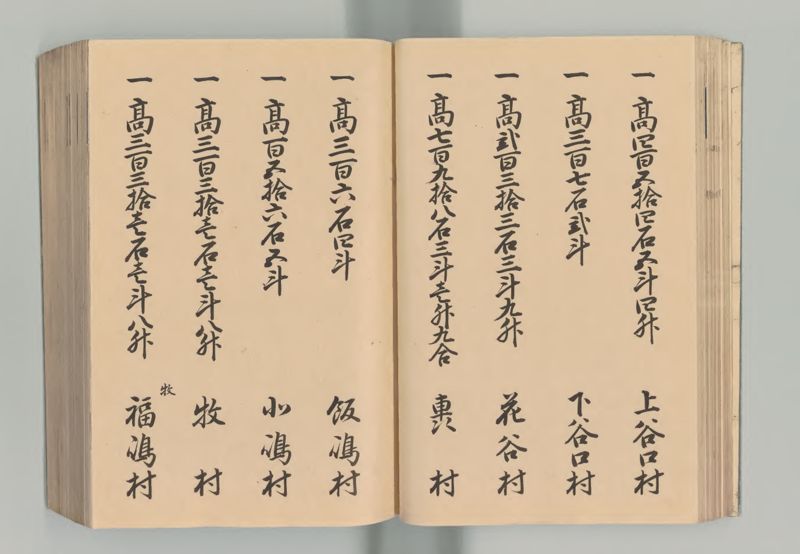 一 髙四百五拾四石五斗四升 上谷口村
一 髙三百七石弐斗 下谷口村
一 髙弐百三拾三石三斗九升 花谷村
一 髙七百九拾八石三斗壱升九合 村
一 髙三百六石四斗 飯嶋村
一 髙百五拾六石五斗 小嶋村
一 髙三百三拾壱石壱斗八升 牧村
牧
一 髙三百三拾壱石壱斗八升 福嶋村